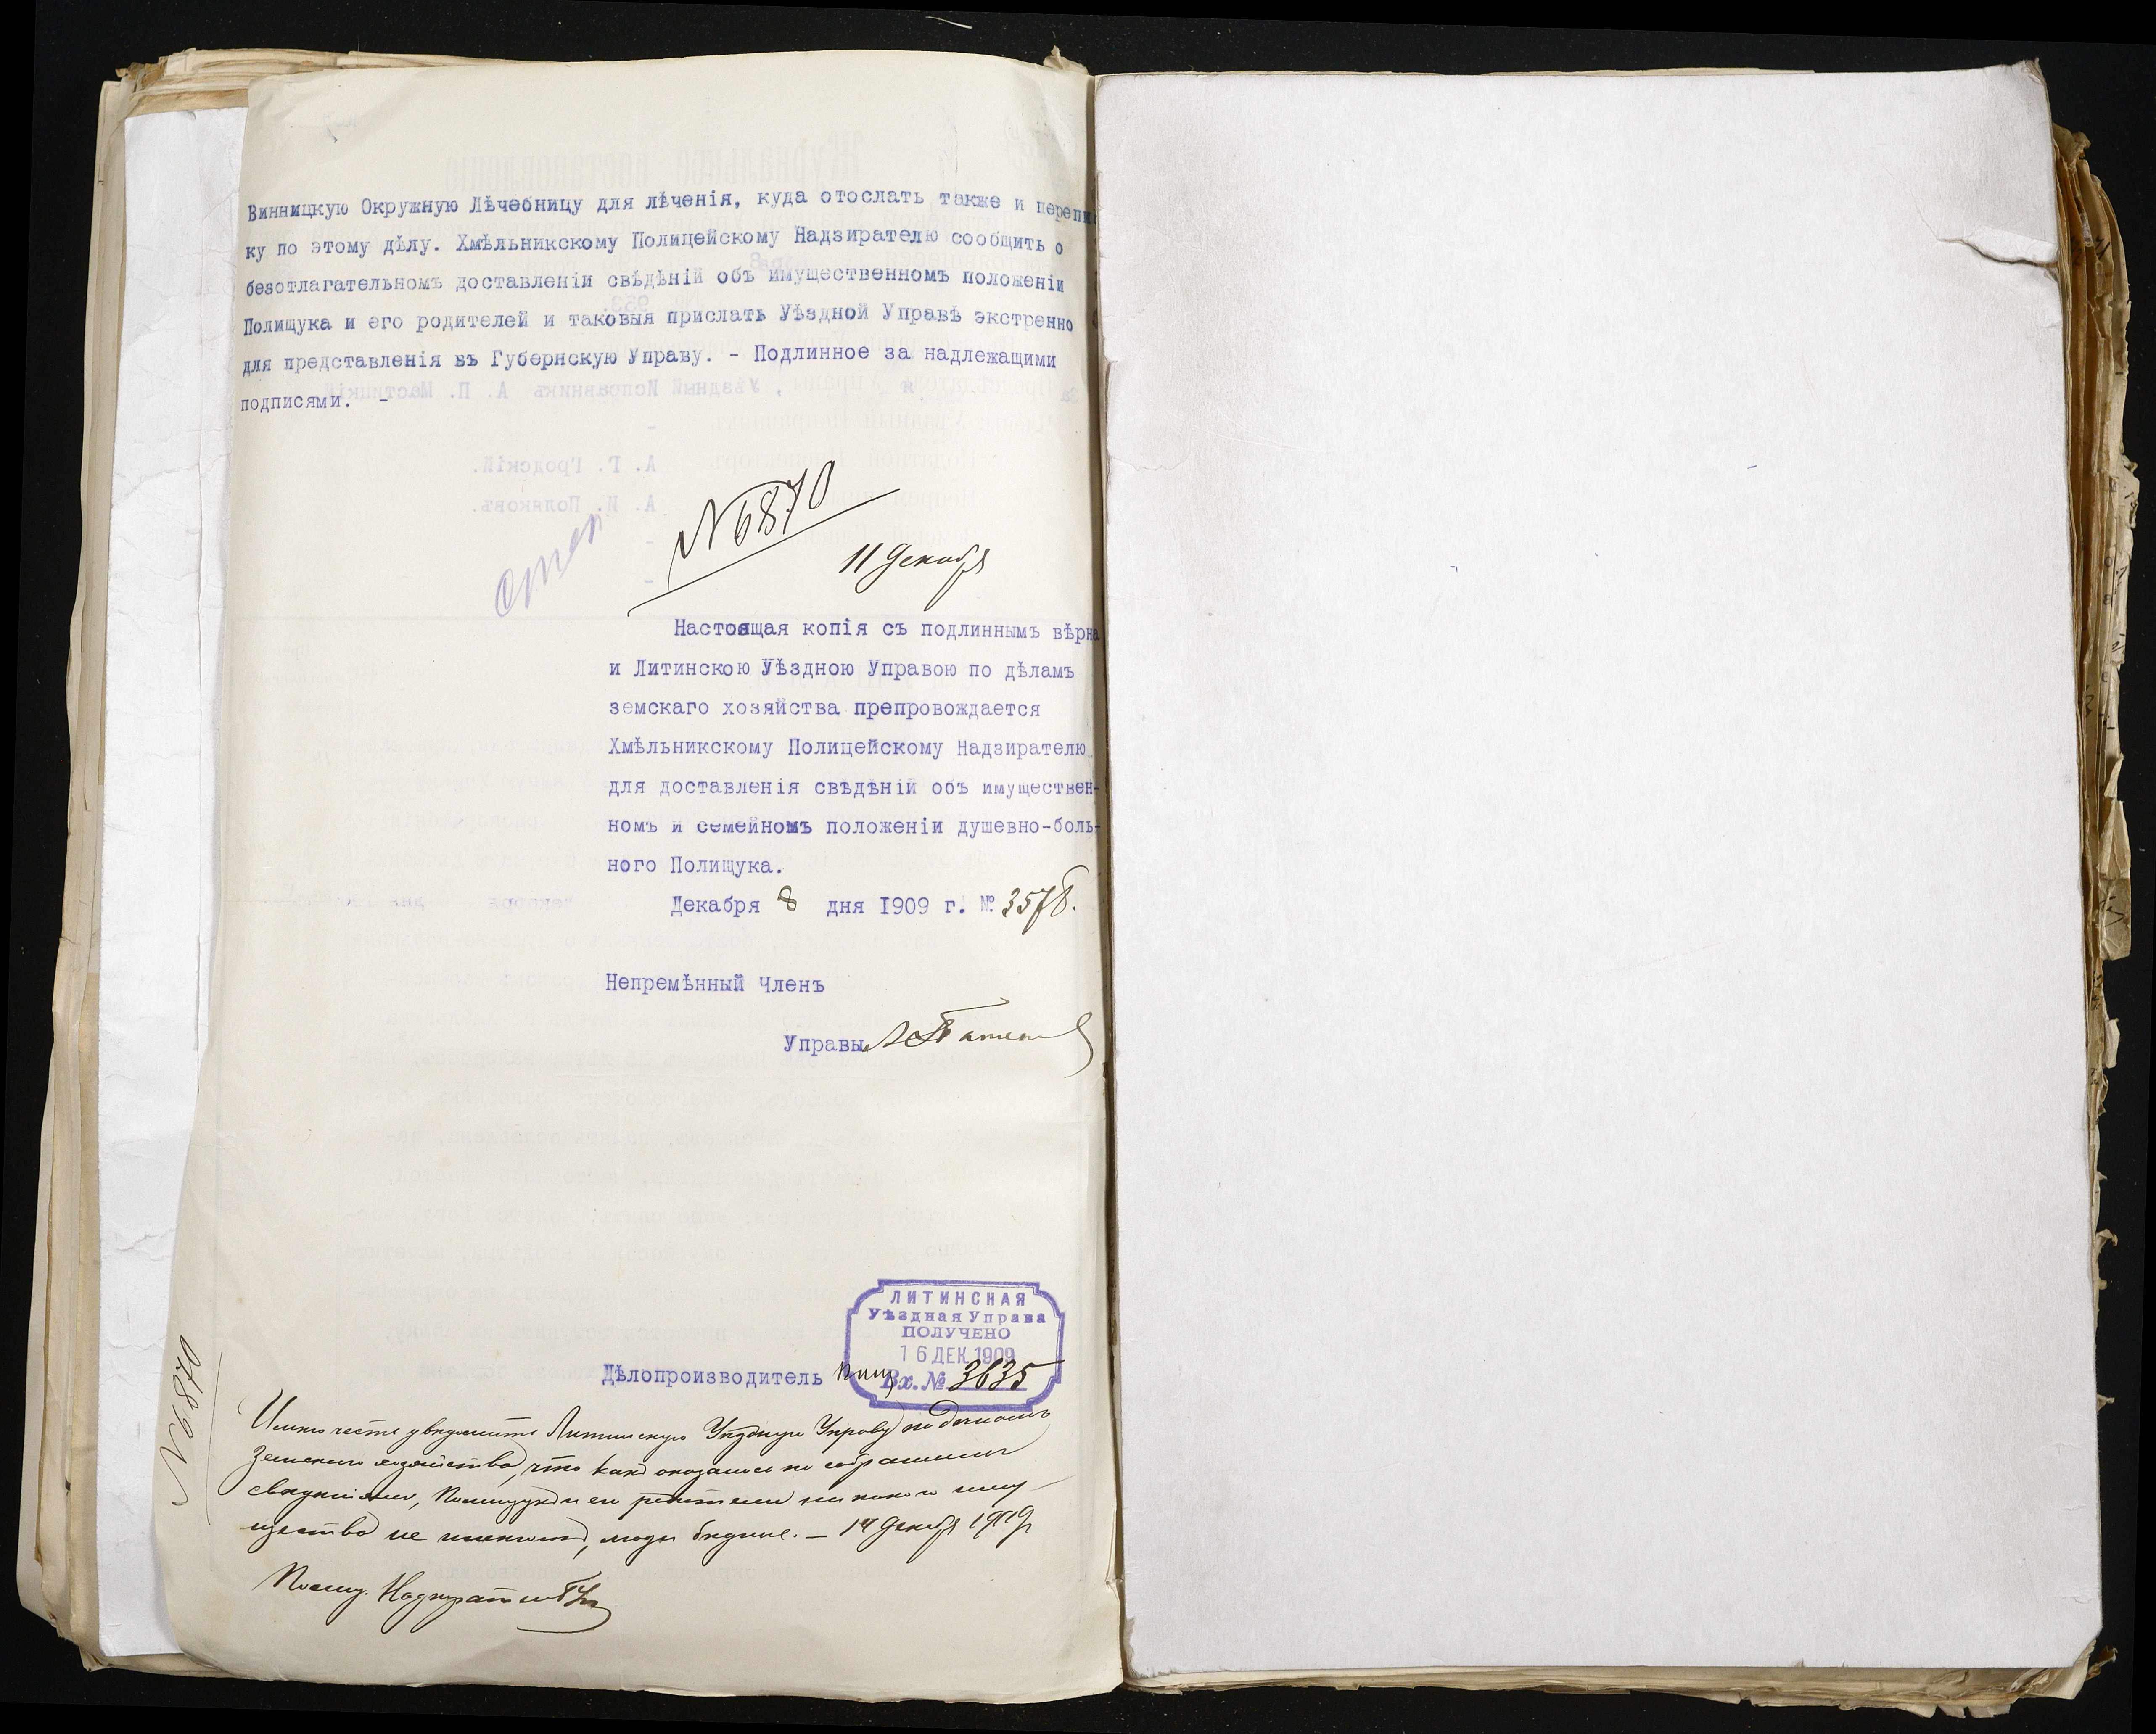 Винницкую Окружную Лѣчебницу для лѣченія, куда отослать также и перепис
ку по этому дѣлу. Хмѣльникскому Полицейскому Надзирателю сообщить о
безотлагательномъ доставленіи свѣдѣній объ имущественномъ положеніи
Полищука и его родителей и таковыя прислать Уѣздной Управѣ экстренно
для представленія въ Губернскую Управу. - Подлинное за надлежащими
подписями. -
№ 6870
11 Декабря
Настоящая копія съ подлиннымъ вѣрна
и Литинскою Уѣздною Управою по дѣламъ
земскаго хозяйства препровождается
Хмѣльникскому Полицейскому Надзирателю
для доставленія свѣдѣній объ имуществен-
номъ и семейномъ положеніи душевно-боль-
ного Полищука.
Декабря 8 дня 1909 г. № 3578.
Непремѣнный Членъ
Управы
ЛИТИНСКАЯ
Уѣздная Управа
ПОЛУЧЕНО
16 ДЕК 1909
Вх. № 3635
Дѣлопроизводитель
№ 6870
Имѣю честь увѣдомить Литинскую Уѣздную Управу по дѣламъ
земскаго хозяйства, что какъ оказалось по собраннымъ
свѣдѣніямъ, Полищукъ и его родители никакого иму-
щества не имѣютъ, люди бѣдные. — 14 Декабря 1909 г.
Полиц. Надзиратель